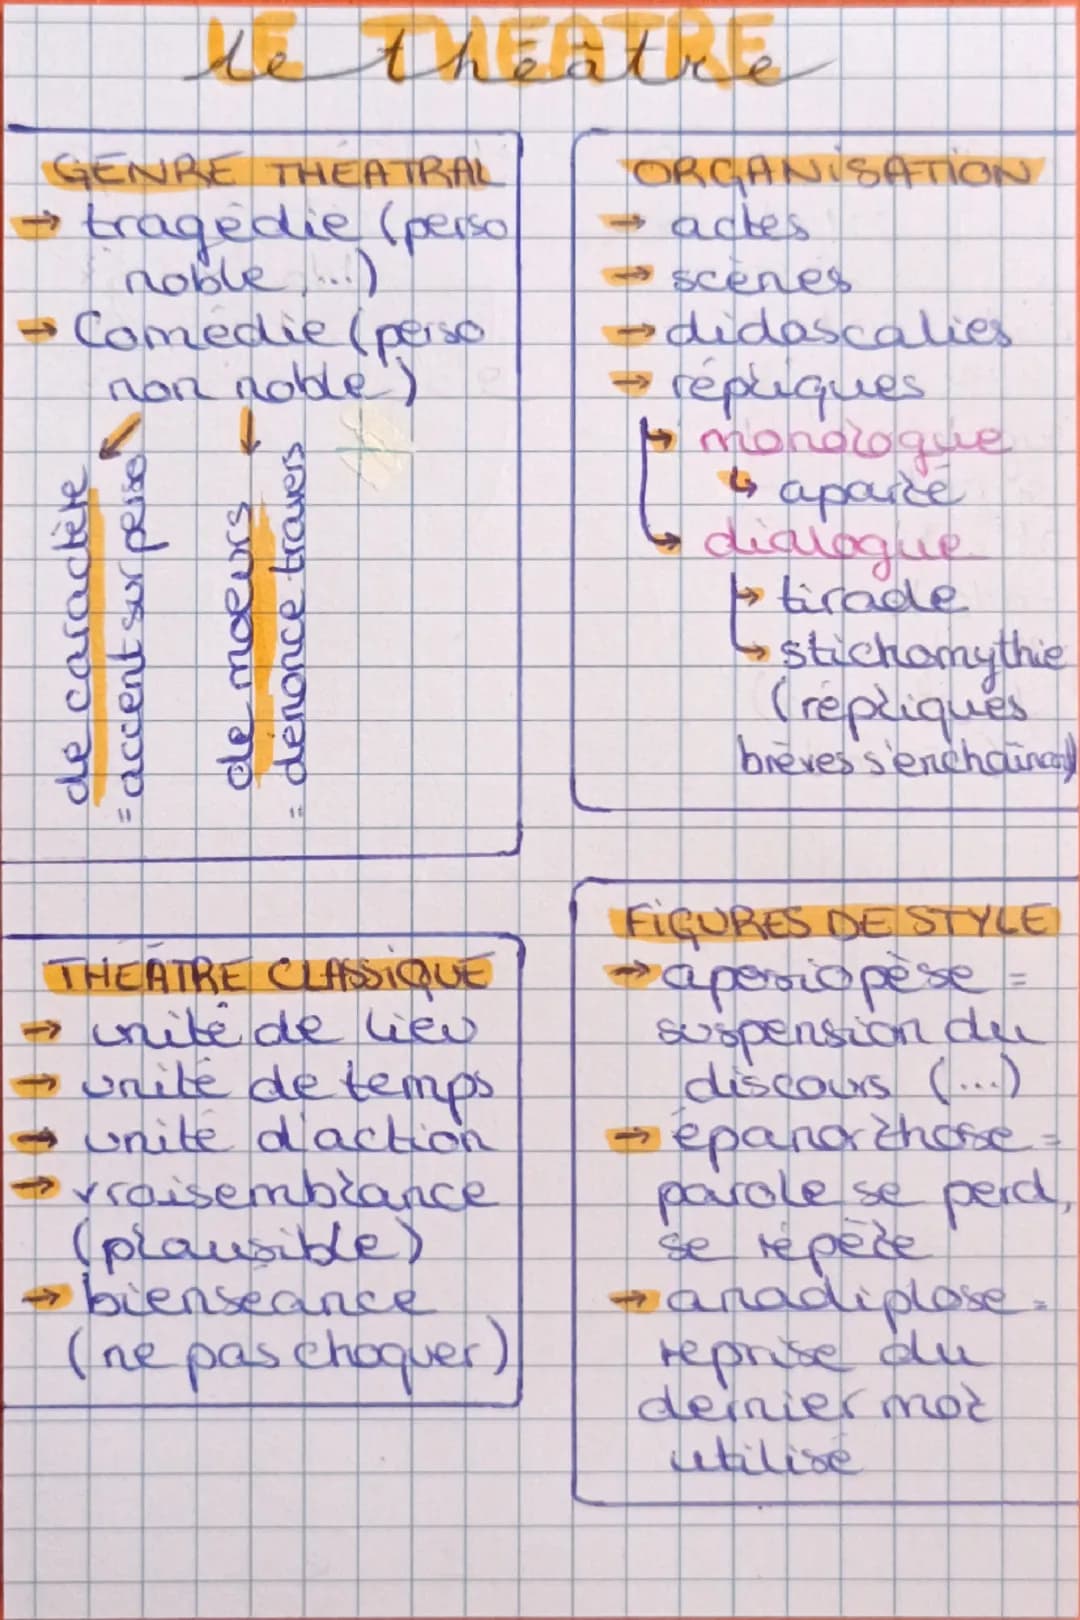 LE THEATRE
le théâtre
GENRE THEATRAL
→ tragédie (perso
noble, ...)
→ Comédie (perso
non noble)
de caractère
= accent sur perso
de moeurs
= dénonce travers
ORGANiSATiON
→ actes
→ scènes
→ didascalies
→ répliques
→ monologue
↳ aparté
→ dialogue
→ tirade
→ stichomythie
(répliques
brèves s'enchaînant)
THÉÂTRE CLASSIQUE
→ unité de lieu
→ unité de temps
→ unité d'action
→ vraisemblance
(plausible)
→ bienséance
(ne pas choquer)
FiGURES DE STYLE
→ aposiopèse =
suspension du
discours (...)
→ épanorthose =
parole se perd,
se répète
→ anadiplose =
reprise du
dernier mot
utilisé